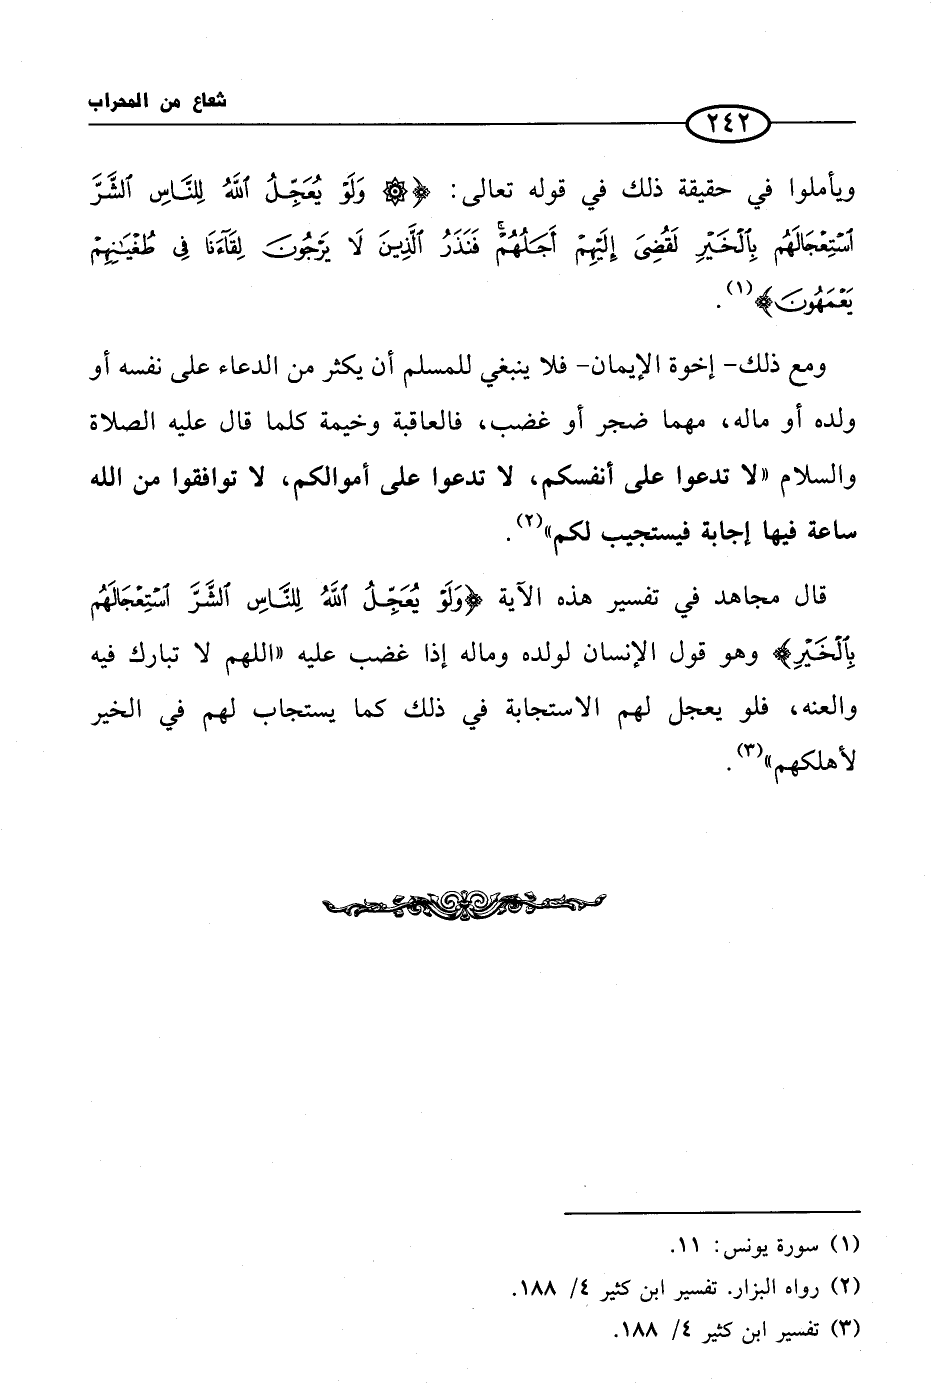 شعاع من المحراب
٢٤٢
ويأملوا في حقيقة ذلك في قوله تعالى: ﴿۞ وَلَوْ يُعَجِّلُ ٱللَّهُ لِلنَّاسِ ٱلشَّرَّ
ٱسْتِعْجَالَهُم بِٱلْخَيْرِ لَقُضِىَ إِلَيْهِمْ أَجَلُهُمْ ۖ فَنَذَرُ ٱلَّذِينَ لَا يَرْجُونَ لِقَآءَنَا فِى طُغْيَـٰنِهِمْ
يَعْمَهُونَ﴾(١).
ومع ذلك- إخوة الإيمان- فلا ينبغي للمسلم أن يكثر من الدعاء على نفسه أو
ولده أو ماله، مهما ضجر أو غضب، فالعاقبة وخيمة كلما قال عليه الصلاة
والسلام «لا تدعوا على أنفسكم، لا تدعوا على أموالكم، لا توافقوا من الله
ساعة فيها إجابة فيستجيب لكم»(٢).
قال مجاهد في تفسير هذه الآية ﴿وَلَوْ يُعَجِّلُ ٱللَّهُ لِلنَّاسِ ٱلشَّرَّ ٱسْتِعْجَالَهُم
بِٱلْخَيْرِ﴾ وهو قول الإنسان لولده وماله إذا غضب عليه «اللهم لا تبارك فيه
والعنه، فلو يعجل لهم الاستجابة في ذلك كما يستجاب لهم في الخير
لأهلكهم»(٣).
(١) سورة يونس: ١١.
(٢) رواه البزار. تفسير ابن كثير ٤/ ١٨٨.
(٣) تفسير ابن كثير ٤/ ١٨٨.